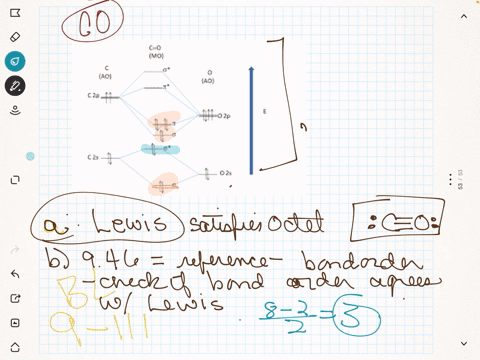 CO
C
(AO)
C=O
(MO)
O
(AO)
σ*
π*
C 2p
O 2p
π
σ
E
σ*
C 2s
O 2s
σ
a. Lewis satisfies Octet :C≡O:
b) 9.46 = reference - bond order
- check of bond order agrees
w/ Lewis
8-2/2 = 3
9-111
53 / 53